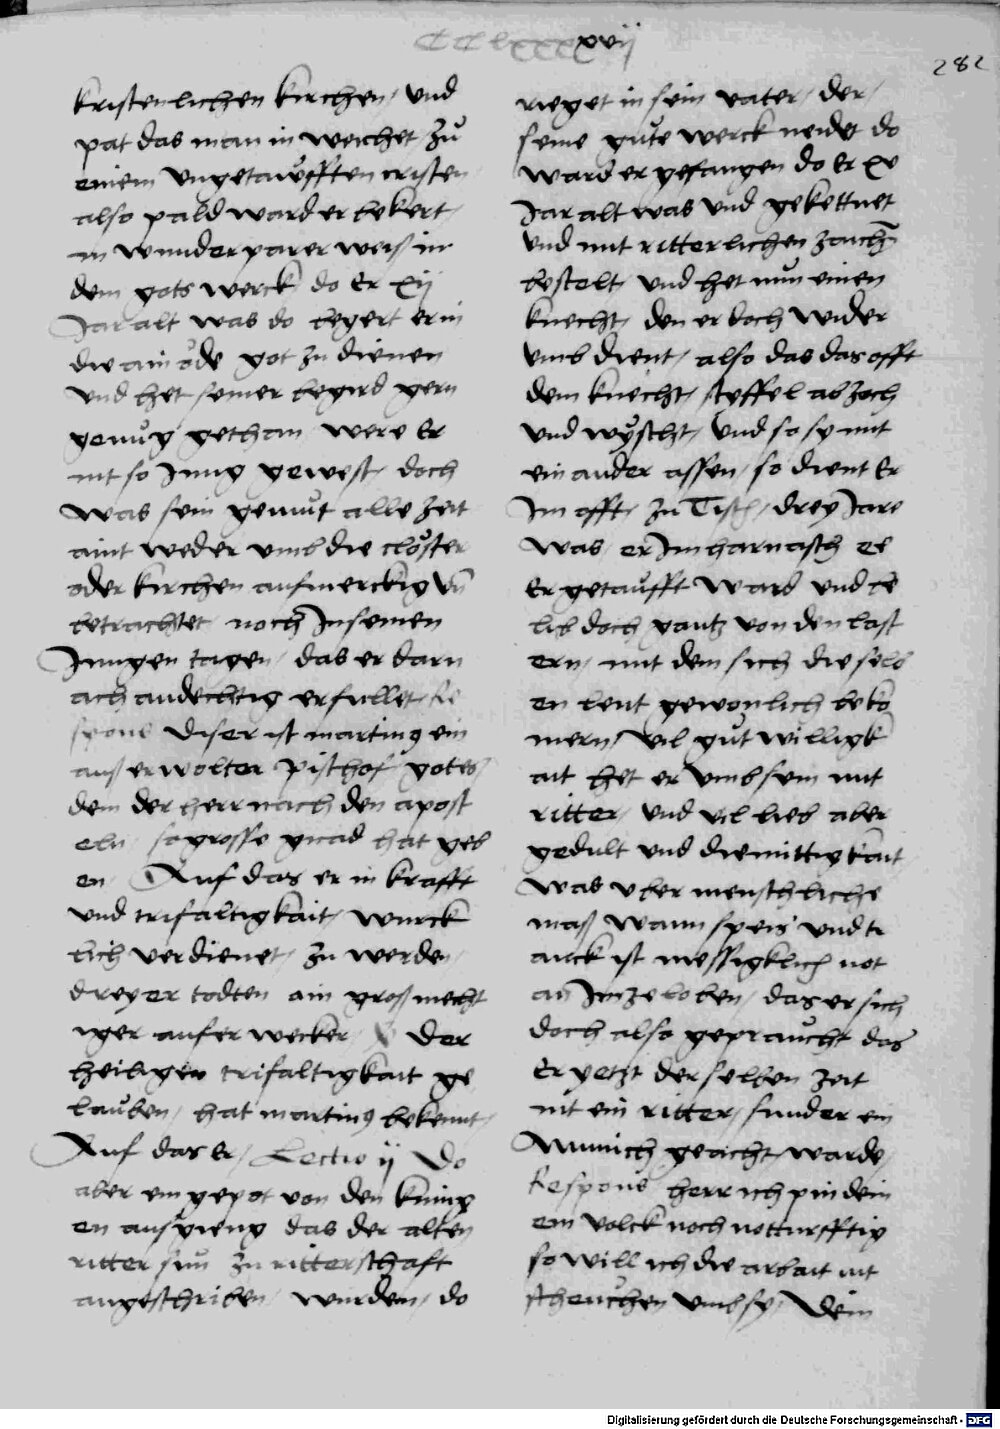 CClxxxxvij
282
kristenlichen kirchen / und
pat das man in weichet / zů
einem ungetaufften cristen
also pald ward er bekert /
in wunderparer weiß in
dem gots werck do Er xij
Jar alt was do begert er in
die ainöde got zu dienen
und het seiner begird gern
genůg gethan were Er
nit so Jung gewest / doch
was sein gemüt alle zeit
aint weder umb die clöster
oder kirchen aufmerckig vn̄
betrachtet noch In seinen
Jungen tagen / das er darn
ach andechtig erfullet Re
spons diser ist martinꝯ ein
auß erwolter pischof gotes /
dem der herr nach den apost
eln / so grosse gnad hat geb
en / Auf das er in krafft
und trifaltigkait / wirck
lich verdienet / zu werden
dreyer todten ain groß mecht
iger auferwecker / Der
heiligen trifaltigkait ge
lauben / hat martinꝯ bekennt /
Auf das Er / Lectio ij Do
aber ein gepot von den kunig
en ausgieng das der alten
ritter sün zu ritterschaft
angeschriben / wurden / do
rieget in sein vater / der /
seine gůte werck neidet do
ward er gefangen do Er xv
Jar alt was und gekettnet
und mit ritterlichen zaichn̄
bestelt / und het nun einen
knecht / den er doch wider
umb dient / also das das offt
dem knecht / steffel ab zoch
und wyscht / und so sy mit
ein ander assen / so dient Er
Im offt / zu Tisch / drey Jare
was / er Im harnasch ee
Er getaufft ward und be
lib doch gantz von den last
ern / mit dem sich die selb
en leut gewonlich bekü
mern / vil gůt willigk
ait het er umb sein mit
ritter / und vil lieb aber
gedult und diemüttigkait
was uber menschliche
maß wann speis und tr
anck ist messigklich not
an Im ze loben / das er sich
doch also gepraucht das
Er yetzt der selben zeit
nit ein ritter / sunder ein
Munich geacht warde /
Respons herr ich pin dein
em volck noch notturfftig
so will ich die arbait nit
scheuchen umb sy / Dein
Digitalisierung gefördert durch die Deutsche Forschungsgemeinschaft - DFG